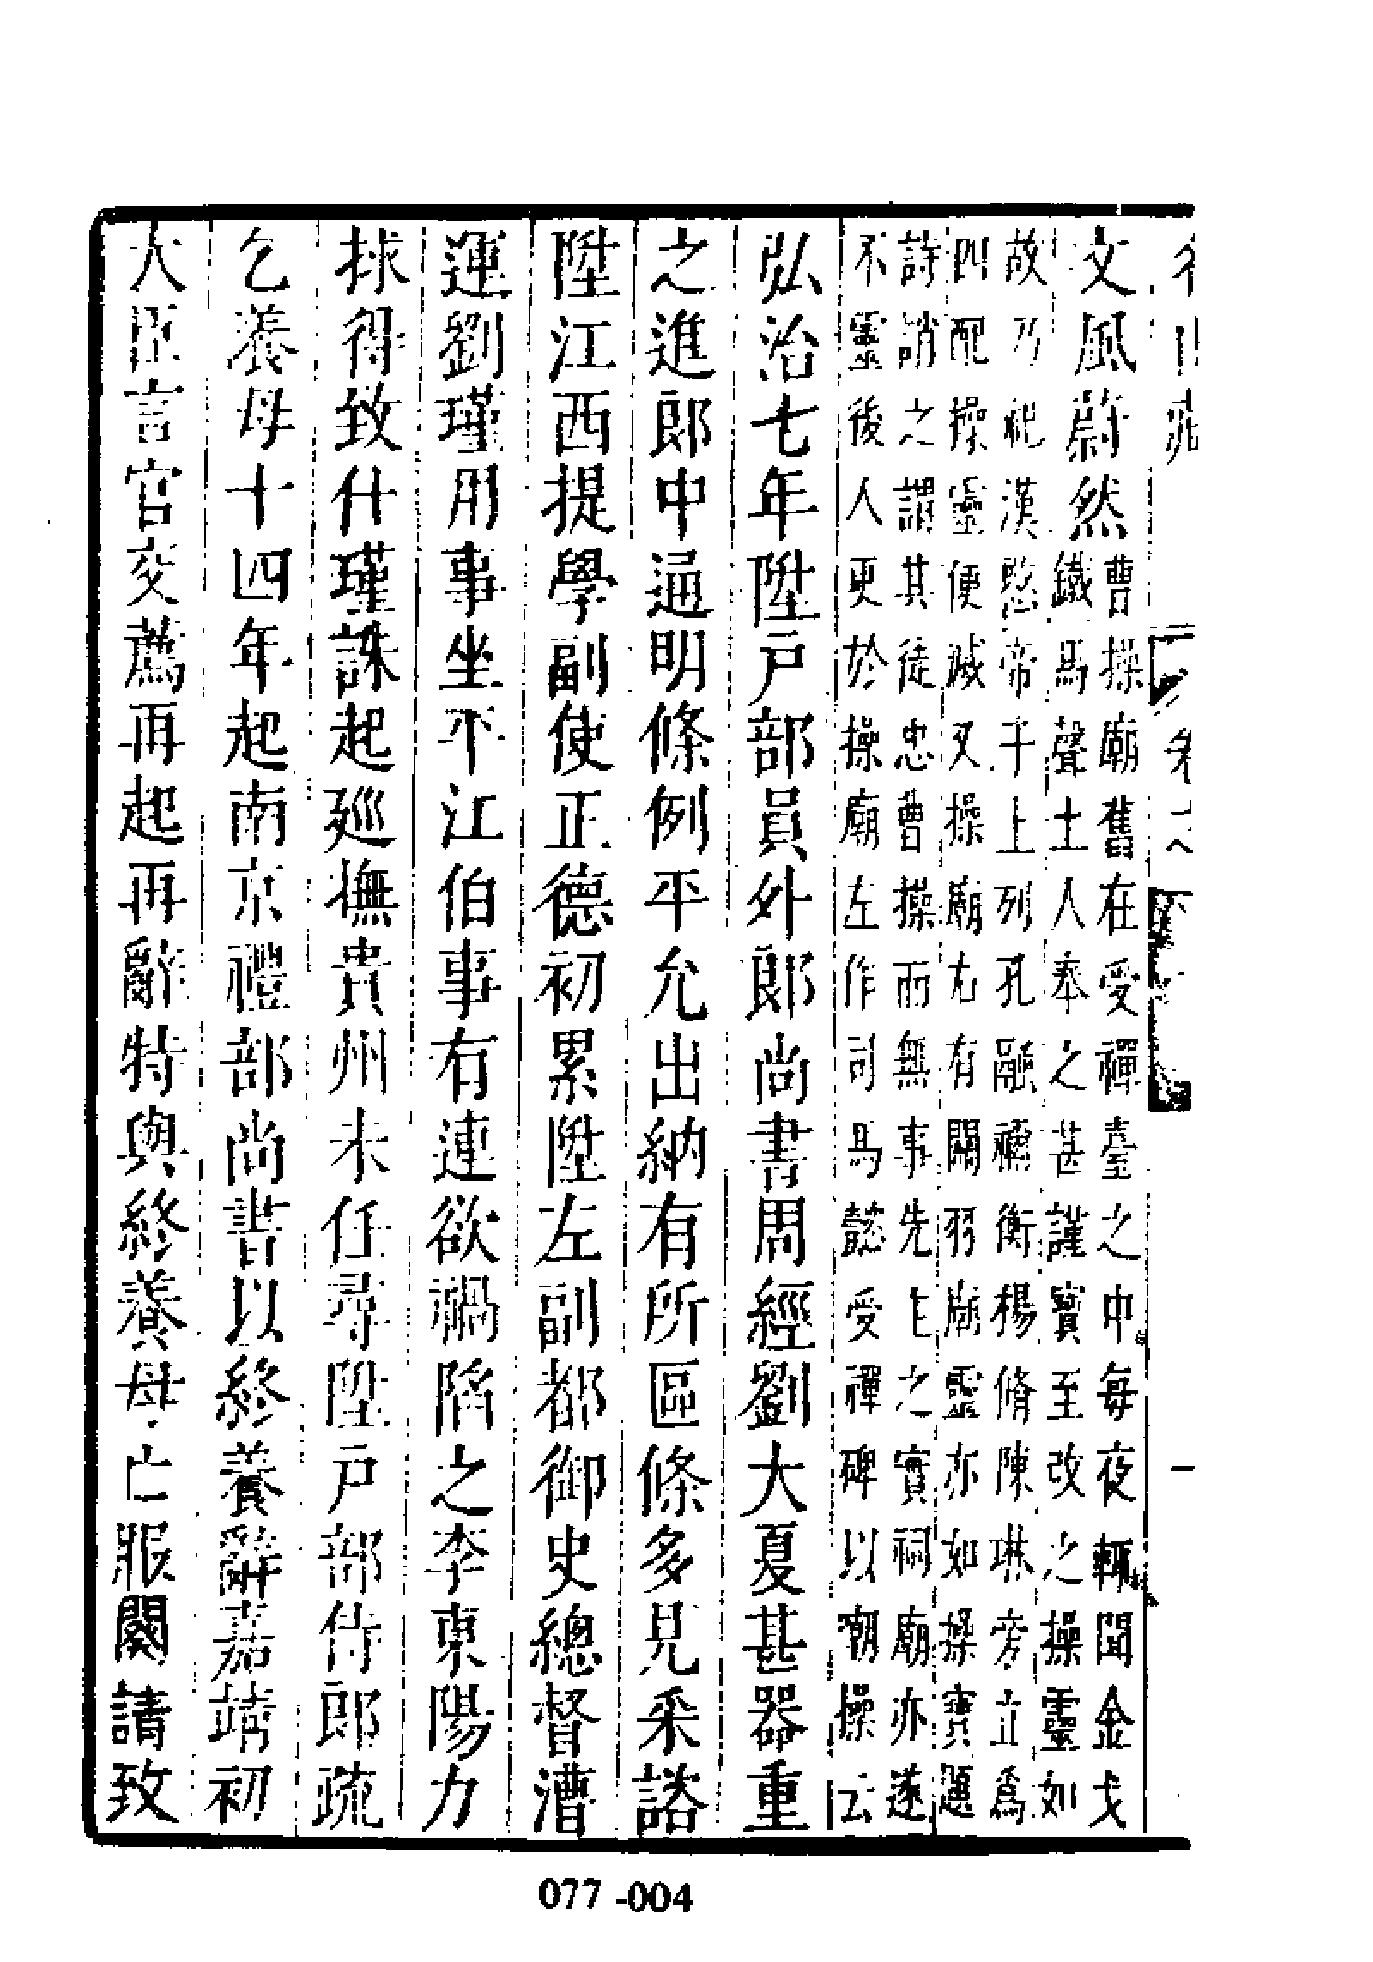 文風蔚然
曹操廟舊在受禪臺之中每夜輒聞金戈
鐵馬聲土人奉之甚謹寶至改之操靈如
故乃祀漢愍帝于上列孔融禰衡楊脩陳琳旁立為
四配操靈便滅又操廟右有關羽廟靈亦如操寶題
詩誚之謂其徒忠曹操而無事先主之實祠廟亦遂
不靈後人更於操廟左作司馬懿受禪碑以嘲操云
弘治七年陞戶部員外郎尚書周經劉大夏甚器重
之進郎中通明條例平允出納有所區條多見采諮
陞江西提學副使正德初累陞左副都御史總督漕
運劉瑾用事坐平江伯事有連欲禍陷之李東陽力
捄得致仕瑾誅起廵撫貴州未任尋陞戶部侍郎疏
乞養母十四年起南京禮部尚書以終養辭嘉靖初
大臣言官交薦再起再辭特與終養母亡服闋請致
077-004